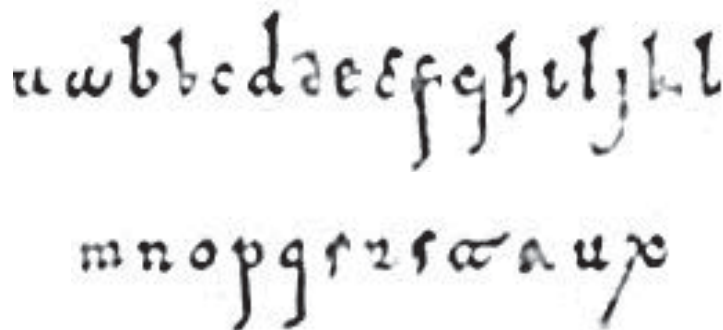 a a b b c d d e e f g h i l j k l
m n o p q r r s t t u x